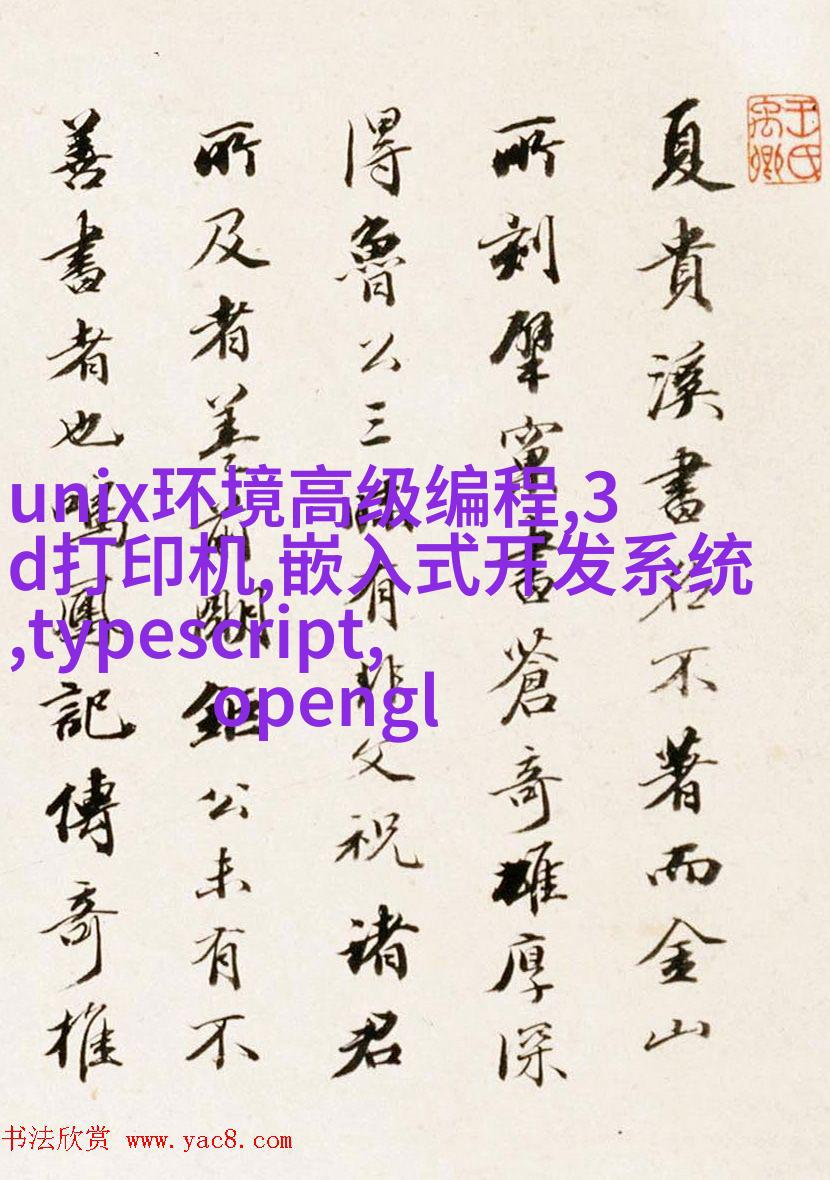 夏貴溪書名不著而金山
所刻擘窠書蒼奇雄厚深
得魯公三法有非父祝諸君
所及者姜前明鉅公未有不
善書者也鳴鳳記傳奇推
王氏
禹卿
unix环境高级编程,3
d打印机,嵌入式开发系统
,typescript,
opengl
书法欣赏 www.yac8.com